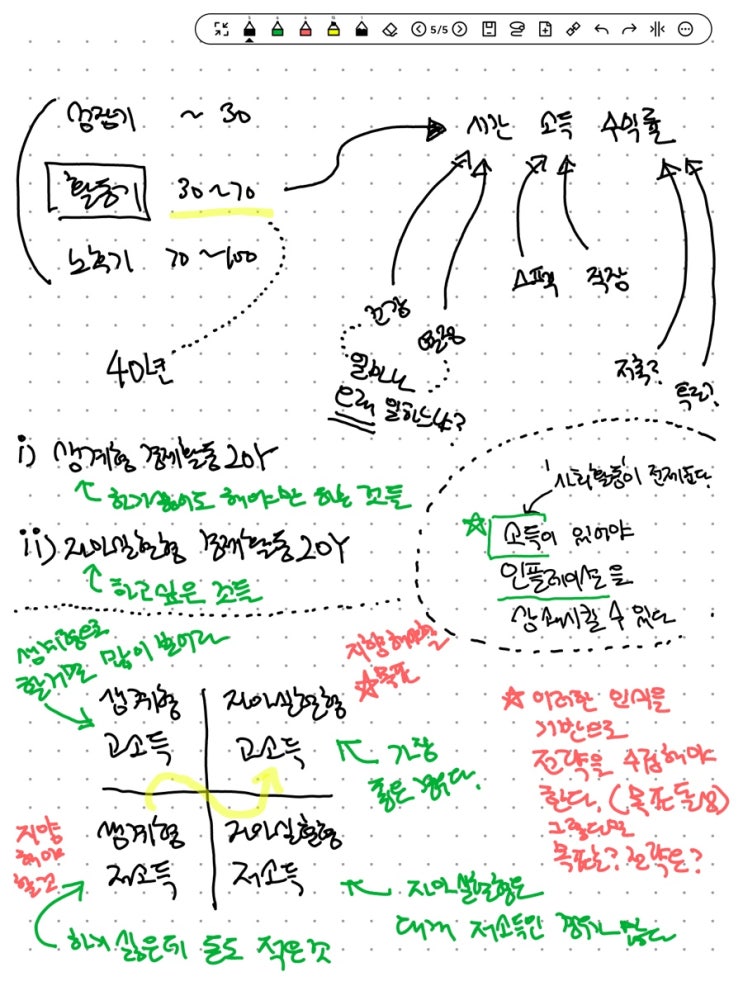 5/5
성장기 ~ 30
활동기 30~70
노후기 70~100
40년
시간 소득 수익률
건강
스펙 직장
얼마나
오래 일하느냐?
저축?
투자?
i) 생계형 경제활동 20Y
하기싫어도 해야만 하는 것들
ii) 자아실현형 경제활동 20Y
하고싶은 것들
사회활동이 전제된다
☆ 소득이 있어야
인플레이션을
상쇄시킬 수 있다
생계형으로
할거면 많이 벌어라
지향해야할
☆ 목표
생계형
고소득
자아실현형
고소득
가장
좋은 거다.
생계형
저소득
자아실현형
저소득
지양
해야
할것
하기 싫은데 돈도 적은것
자아실현형은
대개 저소득인 경우가 많다
☆ 이러한 인식을
기반으로
전략을 수립해야
한다. (목표달성)
그렇다면
목표는? 전략은?